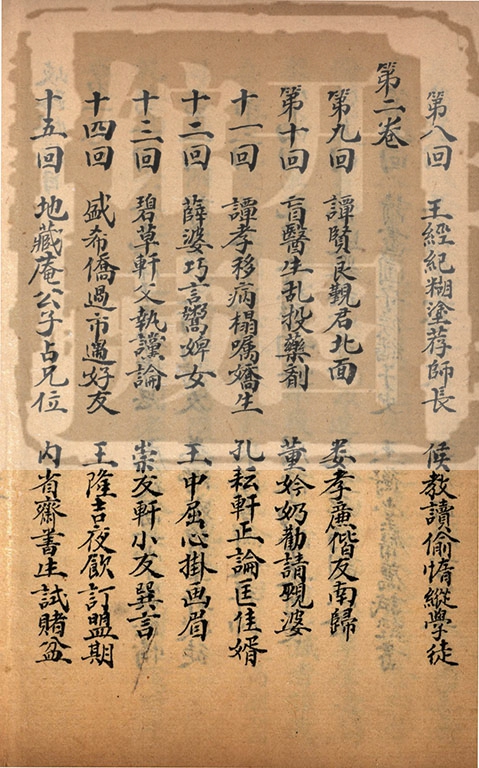 第八回 王經紀糊塗荐師長 侯教讀偷惰縱學徒
第二卷
第九回 譚賢良觀君北面 娄孝廉偕友南歸
第十回 盲醫生乱投藥劑 董妗奶勸請覡婆
十一回 譚孝移病榻嘱嬌生 孔耘軒正論匡佳婿
十二回 薛婆巧言鬻婢女 王中屈心掛画眉
十三回 碧草軒父執讜論 崇友軒小友巽言
十四回 盛希僑過市遇好友 王隆吉夜飲訂盟期
十五回 地藏庵公子占兄位 内省齋書生試賭盆